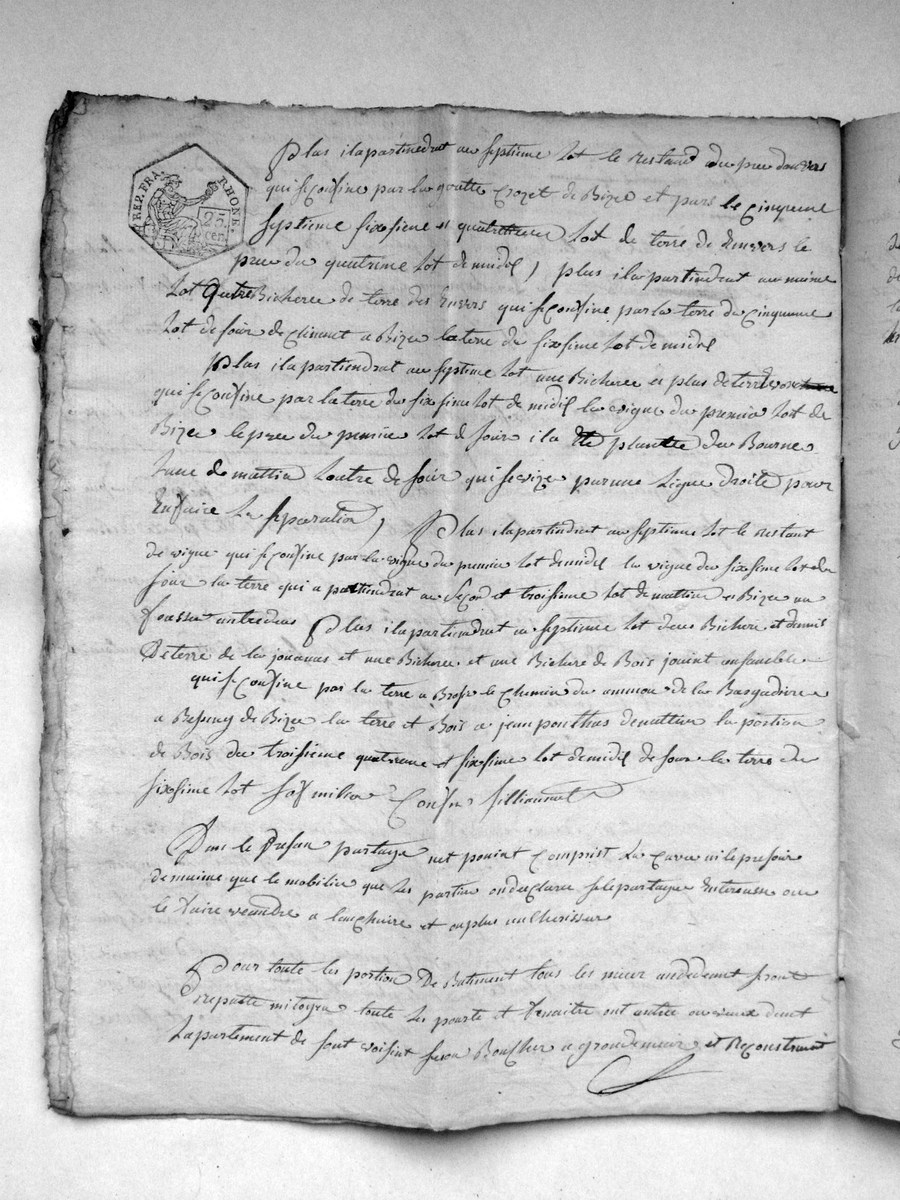 REP. FRA. RHONE.
25 cen.
Plus il apartiendrat au septieme lot le restand du pree
qui se Confine par la goutte Crozet de Bize et pars le Cinquieme
septieme sixsieme et quatrieme lot de terre de Envers le
pree du quatrieme lot de midil, plus il apartiendrat au meime
lot quatre Bicheree de terre des Envers qui se Confine par la terre du Cinquieme
lot de soir de Climat a Bize la terre du sixsime lot de midil
Plus il apartiendrat au septime lot une Bicheree et plus de terre
qui se Confine par la terre du sixsime lot de midil la vigne du premier lot de
Bize le pree du premier lot de soir il a plantee du Bourne
lune de mattin loutre de soir qui se vize par une Ligne Droite pour
En faire La separation, Plus il apartindrat au septime lot le restant
de vigne qui se Confine par la vigne du premier lot de midil la vigne du sixsime lot de
soir la terre qui apartiendrat au segond et troisime lot de mattin et Bize un
foassee entredeus Plus il apartiendrat au septieme lot deus Bichere et demis
De terre de la jouanas et une Bicheree et une Bichere de Bois joint ensamble
qui se Confine par la terre a Brosse le Chemin du de la Basgadiere
a Bessenay de Bize la terre et Bois a jean ponthas de mattin la portion
de Bois du troisieme quatrieme et sixsime lot de midil de soir la terre du
sixsime lot
Dans le presan partage net point Compris La Cave ni le presoir
de maime que le mobilier que les partie on declaree se le partager Entereux ou
le faire veandre a lanchaire et au plus encherisseur
Pour toute les portion De Batiment tous les meur andedant seront
repute mitoyen toute les porte et fenaitre ont autre ouvreure dont
Lapartement de sont voisint seron Bouchee a grondemeur et Reconstruit